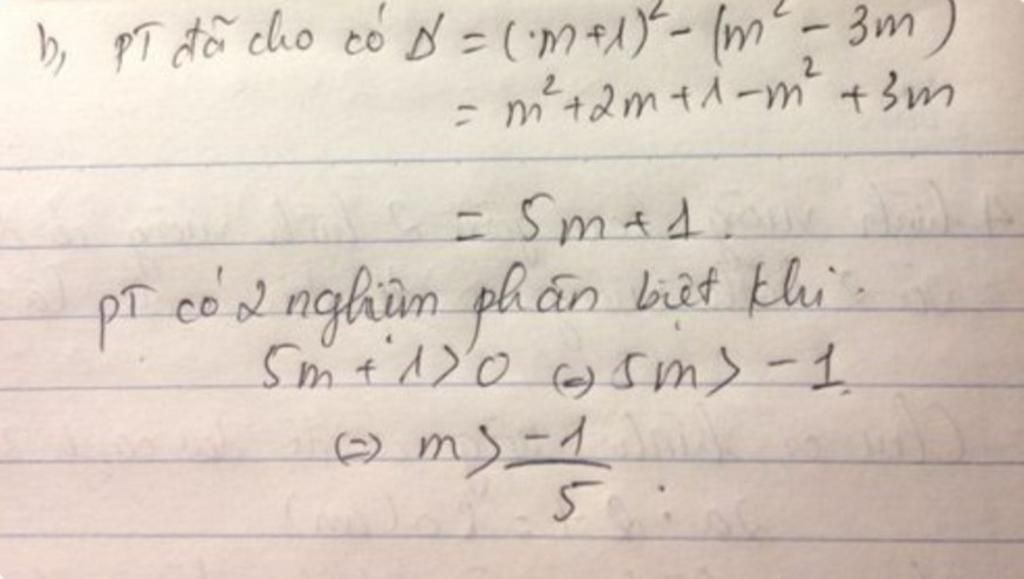 b, PT đã cho có Δ' = (m+1)² - (m² - 3m)
= m² + 2m + 1 - m² + 3m
= 5m + 1.
PT có 2 nghiệm phân biệt khi
5m + 1 > 0 (=) 5m > -1
(=) m > -1/5.